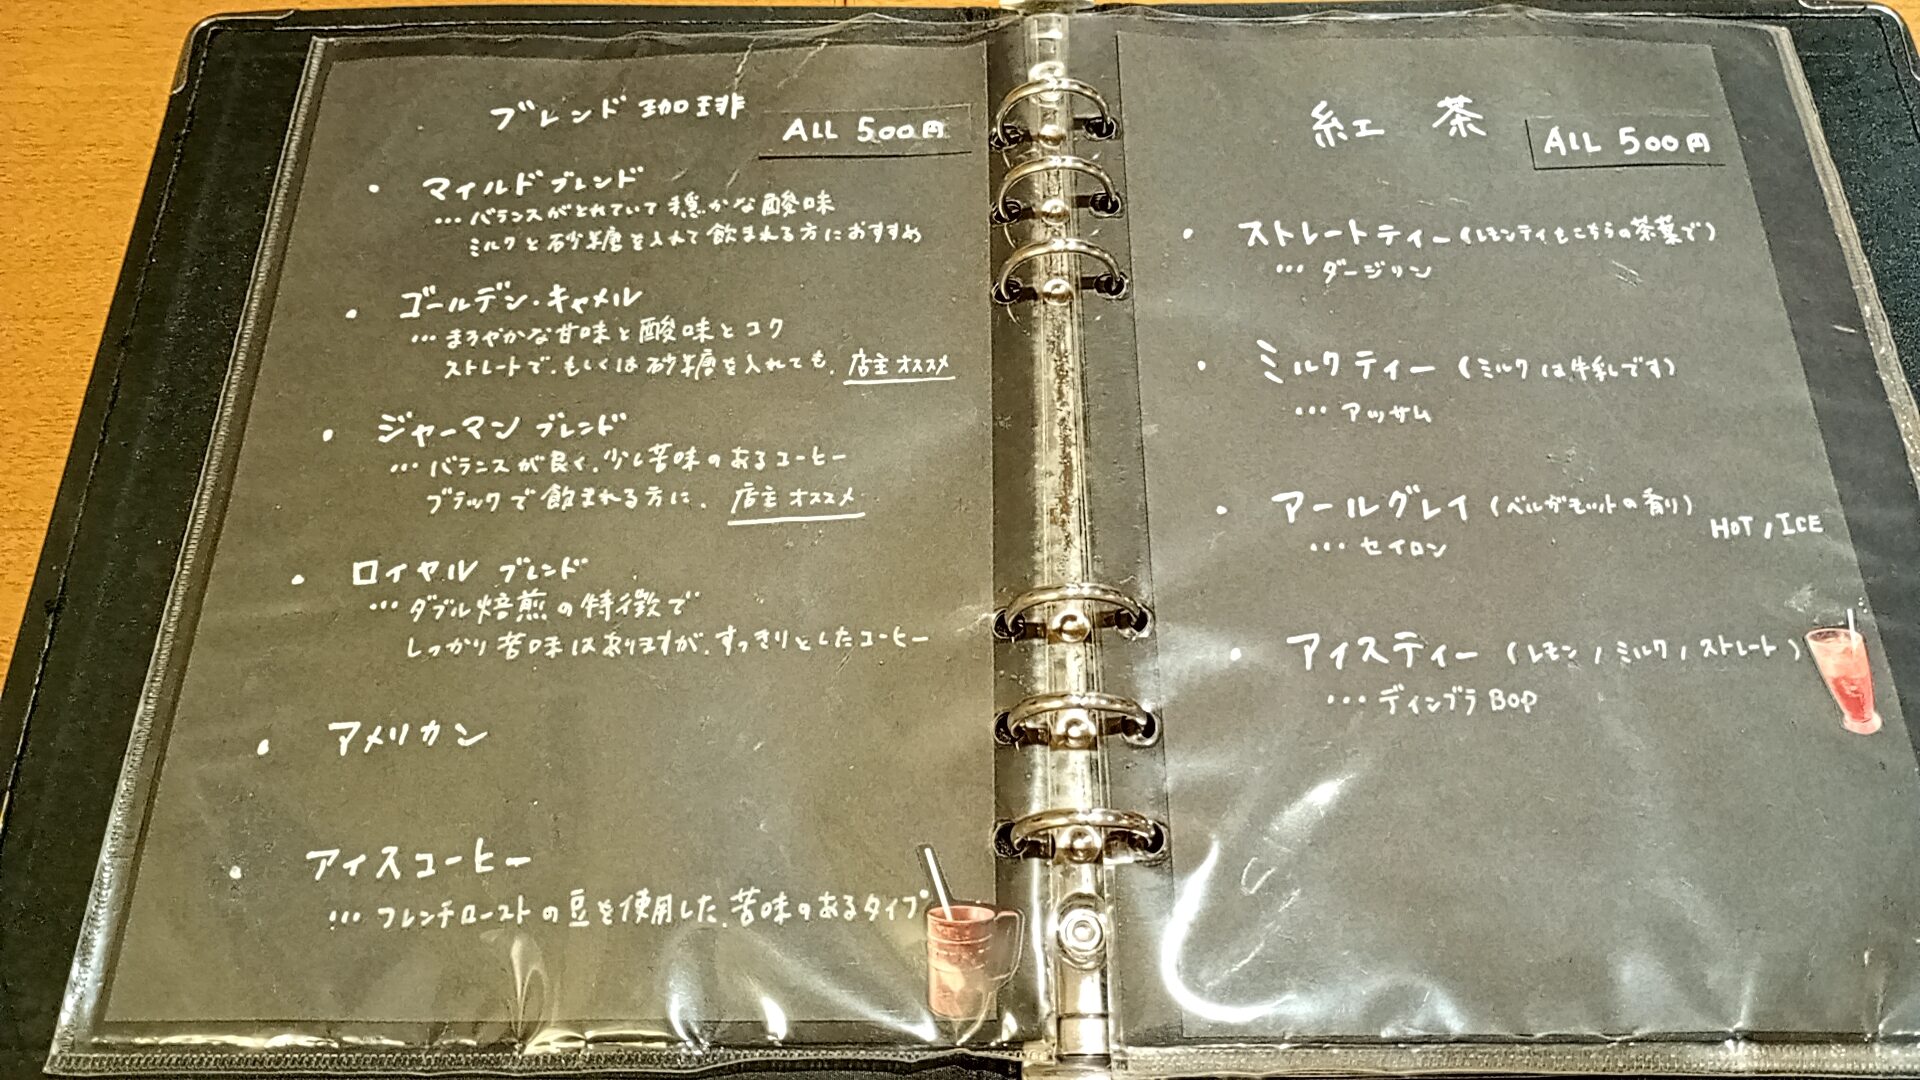 ブレンド珈琲
ALL 500円
・マイルドブレンド
…バランスがとれていて穏かな酸味
ミルクと砂糖を入れて飲まれる方におすすめ
・ゴールデン・キャメル
…まろやかな甘味と酸味とコク
ストレートで、もしくは砂糖を入れても、店主オススメ
・ジャーマンブレンド
…バランスが良く、少し苦味のあるコーヒー
ブラックで飲まれる方に、店主オススメ
・ロイヤルブレンド
…ダブル焙煎の特徴で
しっかり苦味はありますが、すっきりとしたコーヒー
・アメリカン
・アイスコーヒー
…フレンチローストの豆を使用した、苦味のあるタイプ
紅茶
ALL 500円
・ストレートティー(レモンティもこちらの茶葉で)
…ダージリン
・ミルクティー(ミルクは牛乳です)
…アッサム
・アールグレイ(ベルガモットの香り)
HOT / ICE
…セイロン
・アイスティー(レモン / ミルク / ストレート)
…ディンブラ BOP